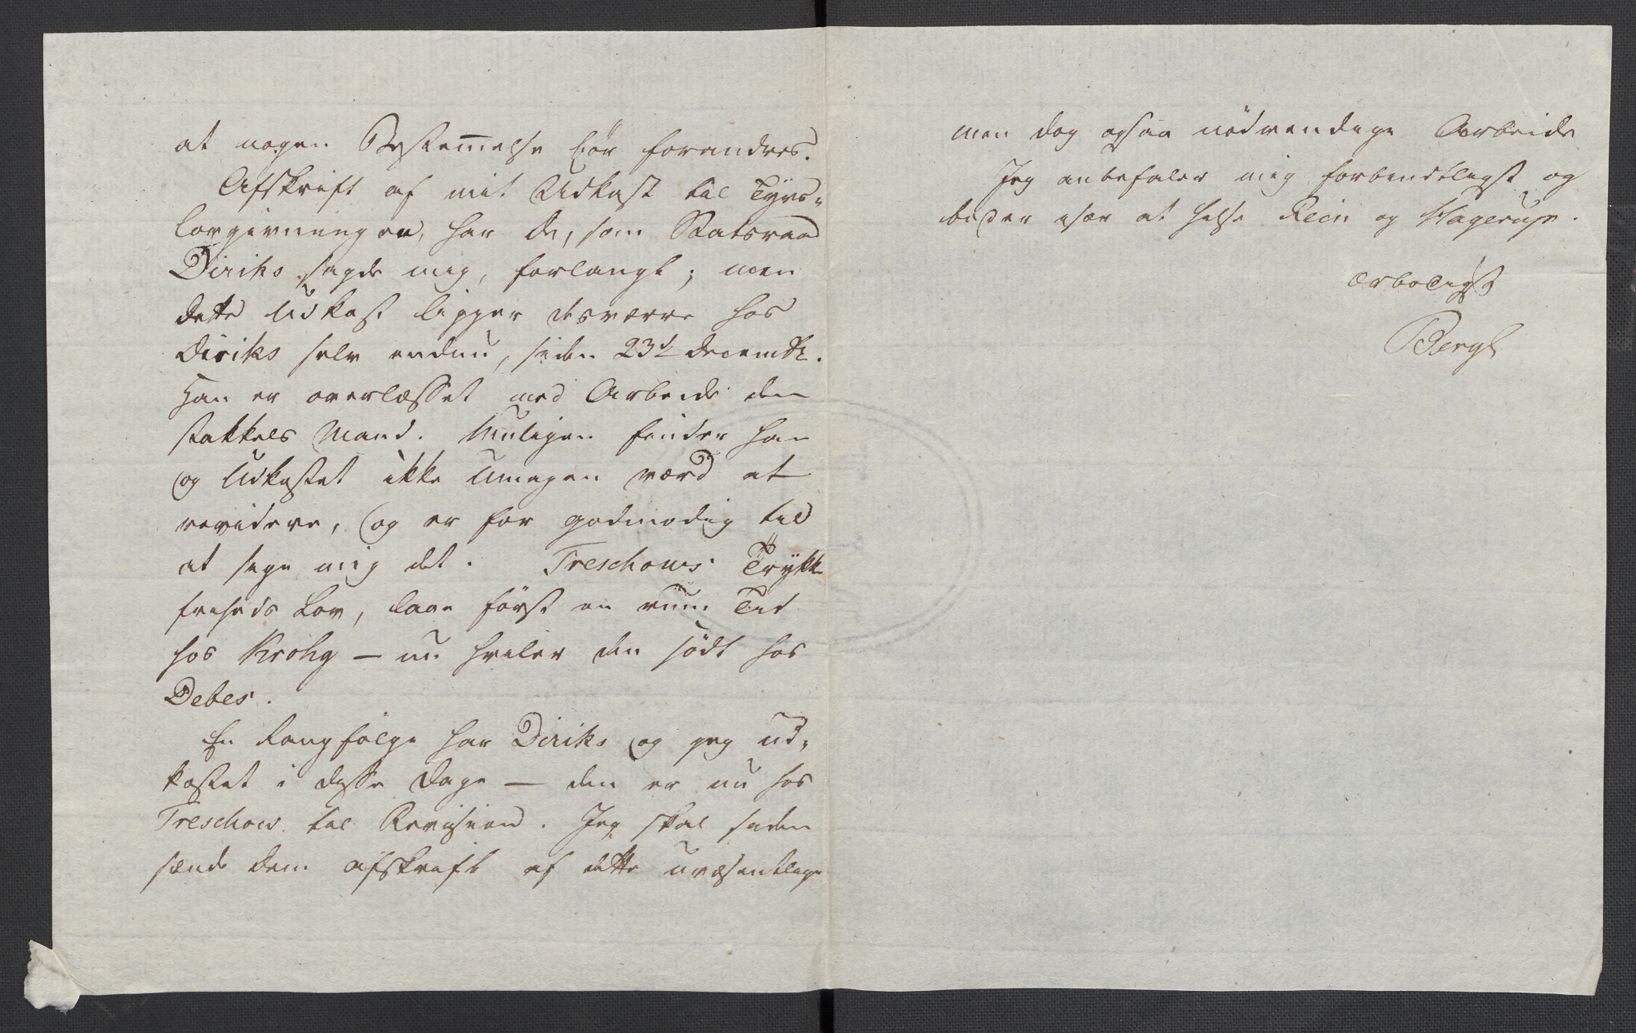 at nogen Bestem̅else bør forandres.
Afskrift af mit Udkast til Tyvs-
lovgivningen, har De, som Statsraad
Diriks sagde mig, forlangt; men
dette Udkast ligger desværre hos
Diriks selv endnu, siden 23d Decembr.
Han er overlæsset med Arbeide den
stakkels Mand. Muligen finder han
og Udkastet ikke Umagen værd at
revidere, og er for godmodig til
at sige mig det. Treschows Trykke
friheds Lov, laae først en rum Tid
hos Krohg – nu hviler den södt hos
Debes.
En Rangfølge har Diriks og jeg ud-
kastet i disse Dage – den er nu hos
Treschow til Revision. Jeg skal siden
sende Dem Afskrift af dette uvæsentlige
men dog ogsaa nödvendige Arbeide
Jeg anbefaler mig forbindtligst og
beder især at hilse Rein og Hagerup.
ærbödigst
Bergh